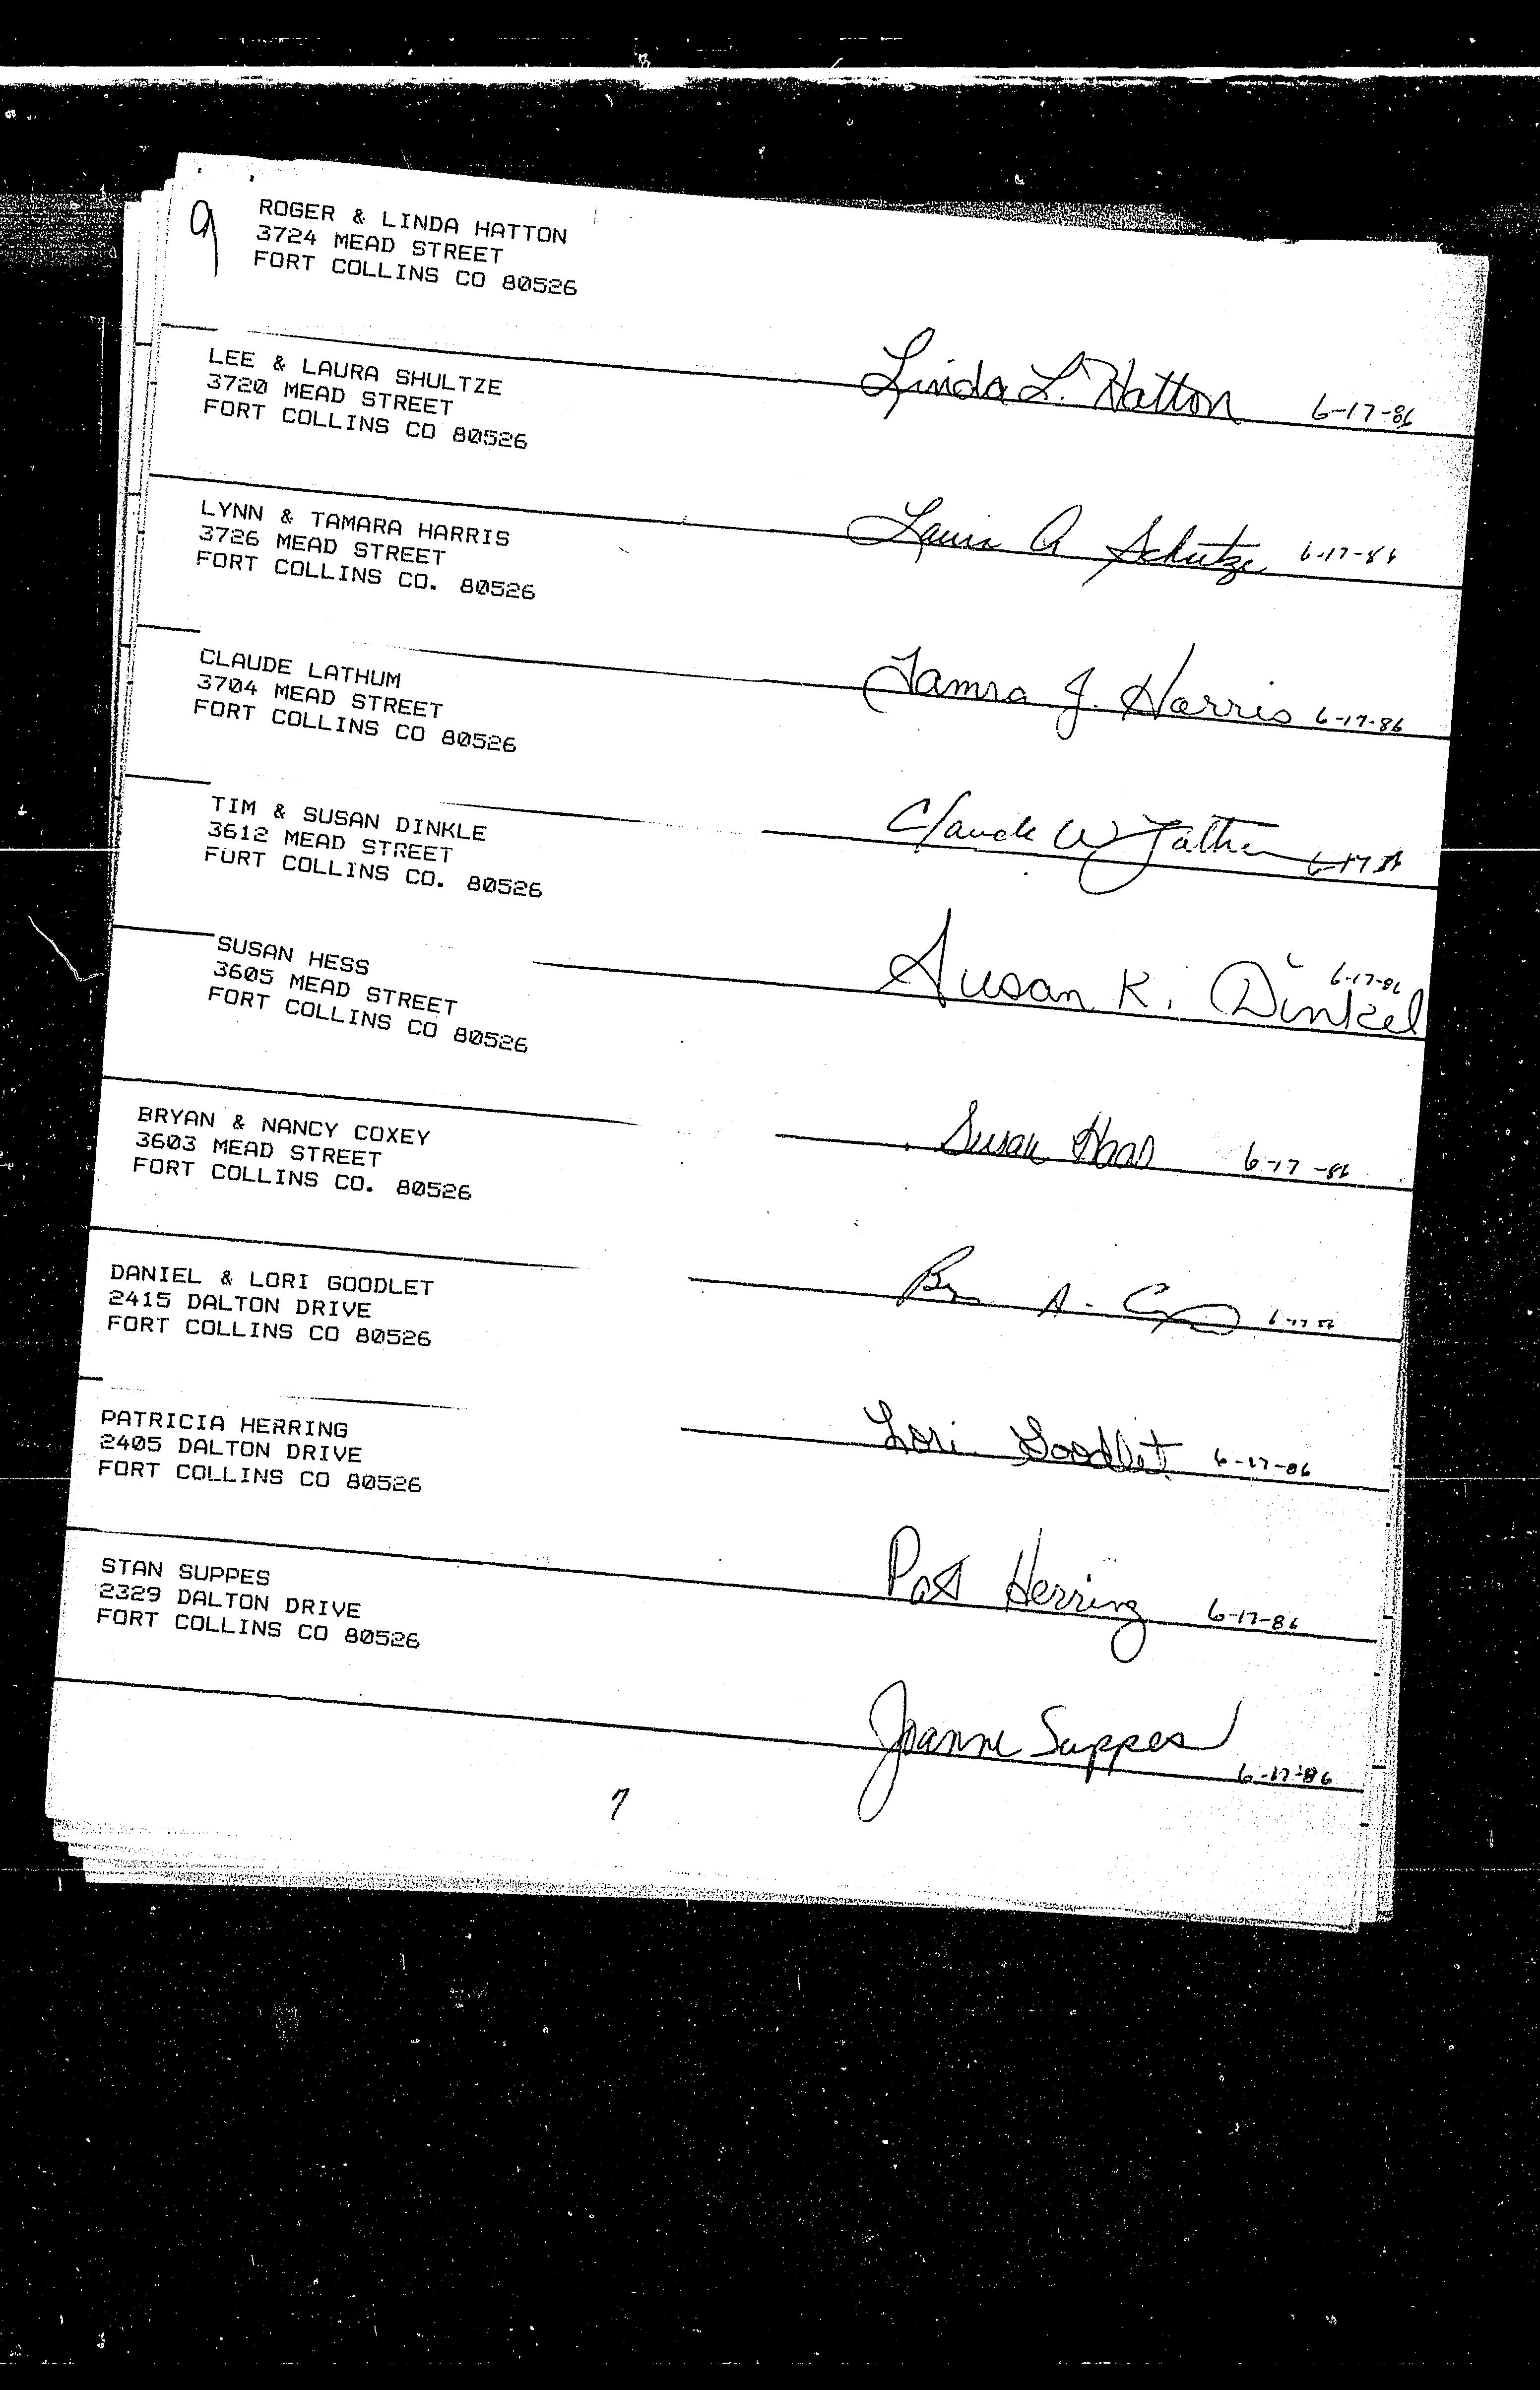 9
ROGER & LINDA HATTON
3724 MEAD STREET
FORT COLLINS CO 80526
Linda L. Hatton 6-17-86
LEE & LAURA SHULTZE
3720 MEAD STREET
FORT COLLINS CO 80526
Laura A Schutze 6-17-86
LYNN & TAMARA HARRIS
3726 MEAD STREET
FORT COLLINS CO. 80526
Tamra J. Harris 6-17-86
CLAUDE LATHUM
3704 MEAD STREET
FORT COLLINS CO 80526
Claude W 6-17
TIM & SUSAN DINKLE
3612 MEAD STREET
FORT COLLINS CO. 80526
Susan K. Dinkel 6-17-86
SUSAN HESS
3605 MEAD STREET
FORT COLLINS CO 80526
Susan Haas 6-17-86
BRYAN & NANCY COXEY
3603 MEAD STREET
FORT COLLINS CO. 80526
DANIEL & LORI GOODLET
2415 DALTON DRIVE
FORT COLLINS CO 80526
Lori Goodlet 6-17-86
PATRICIA HERRING
2405 DALTON DRIVE
FORT COLLINS CO 80526
Pat Herring 6-17-86
STAN SUPPES
2329 DALTON DRIVE
FORT COLLINS CO 80526
Joanne Suppes
6-17-86
7